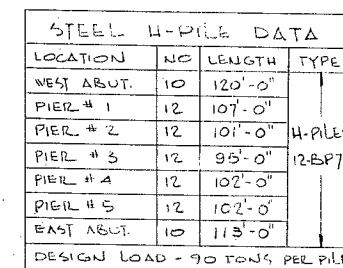 STEEL H-PILE DATA
LOCATION NO LENGTH TYPE
WEST ABUT. 10 120'-0"
PIER # 1 12 107'-0"
PIER # 2 12 101'-0" H-PILE
PIER # 3 12 95'-0" 12-BP7
PIER # 4 12 102'-0"
PIER # 5 12 102'-0"
EAST ABUT. 10 113'-0"
DESIGN LOAD - 90 TONS PER PILE